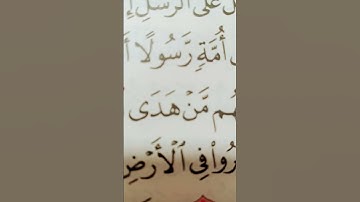 عَلَى ٱلرُّسُلِ إِ
أُمَّةٍ رَّسُولًا أَ
هُم مَّنْ هَدَى
رُوا۟ فِى ٱلْأَرْضِ